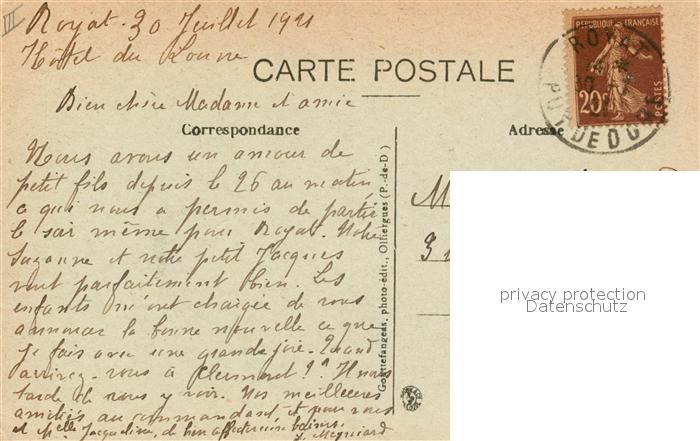 III
Royat. 30 Juillet 1921
Hôtel du Louvre
CARTE POSTALE
Bien chère Madame et amie
Correspondance
Adresse
Nous avons un amour de
petit fils depuis le 26 au matin
ce qui nous a permis de partir
le soir même pour Royat. Notre
Suzanne et notre petit Jacques
vont parfaitement bien. Les
enfants m'ont chargée de vous
annoncer la bonne nouvelle ce que
je fais avec une grande joie. Quand
arrivez-vous à Clermont? Il nous
tarde de vous y voir. Nos meilleures
amitiés au commandant, et pour vous
et Melle Jacqueline, de bien affectueux baisers.
Meyniard
REPUBLIQUE FRANÇAISE
20c
POSTES
ROYAT
PUY DE DOME
Gouttefangeas, photo-édit., Olliergues (P.-de-D)
M
3
privacy protection
Datenschutz